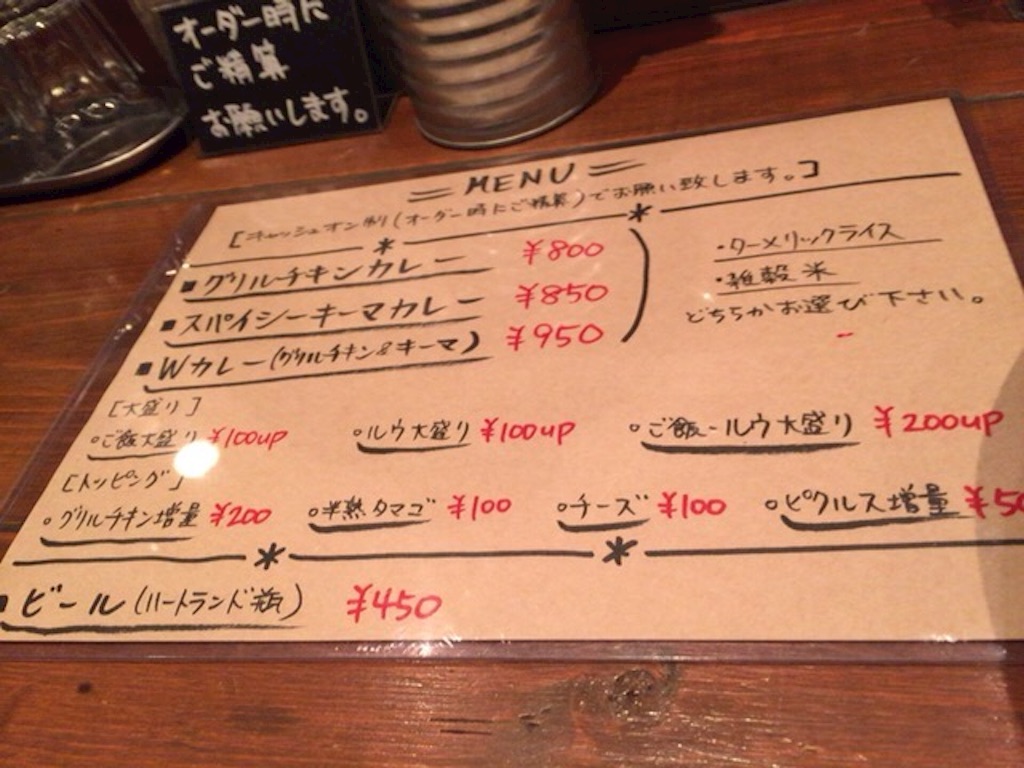 オーダー時に
ご精算
お願いします。
MENU
[キャッシュオン制(オーダー時にご精算)でお願い致します。]
■グリルチキンカレー ¥800
■スパイシーキーマカレー ¥850
■Wカレー(グリルチキン&キーマ) ¥950
・ターメリックライス
・雑穀米
どちらかお選び下さい。
[大盛り]
○ご飯大盛り ¥100up ○ルウ大盛り ¥100up ○ご飯-ルウ大盛り ¥200up
[トッピング]
○グリルチキン増量 ¥200 ○半熟タマゴ ¥100 ○チーズ ¥100 ○ピクルス増量 ¥50
■ビール(ハートランド瓶) ¥450